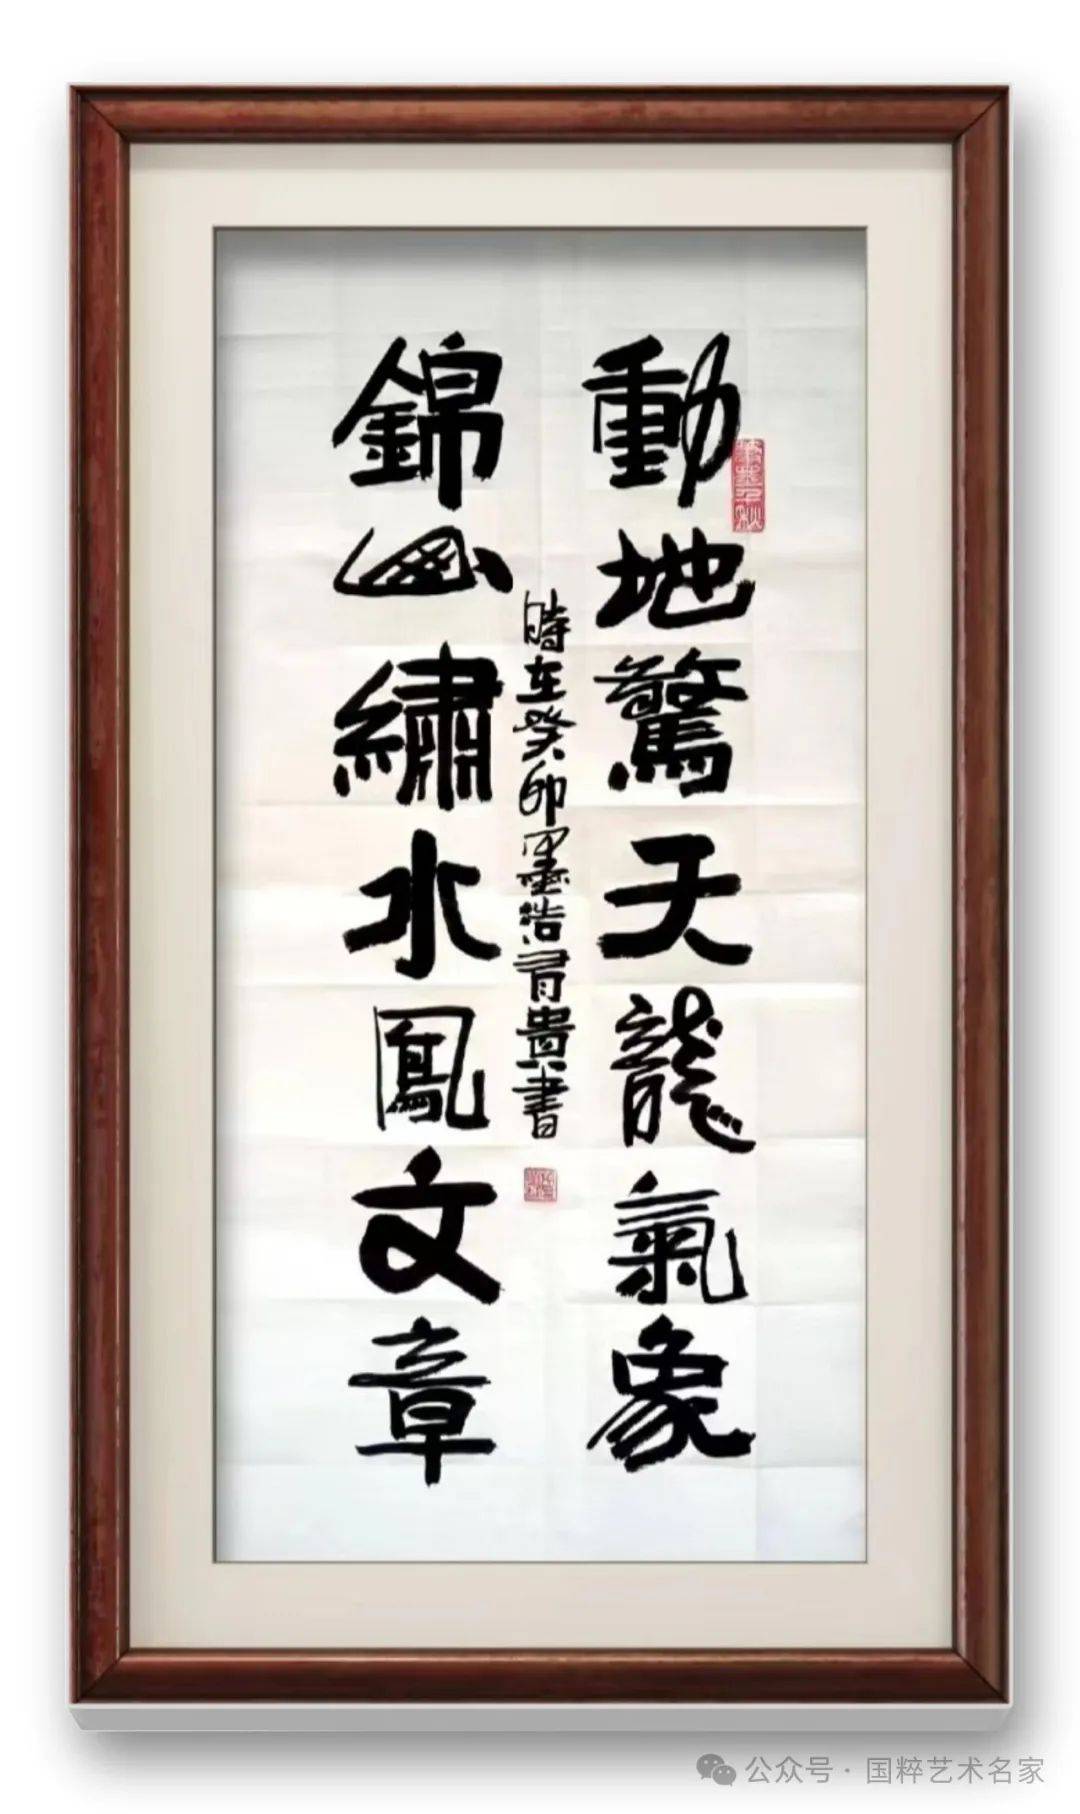 動地驚天龍氣象
錦山繡水鳳文章
時在癸卯墨浩君貴書
公众号 · 国粹艺术名家